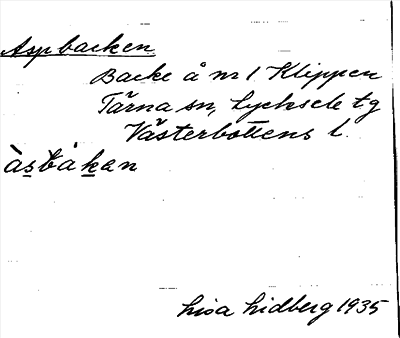 Aspbacken
Backe å nr 1 Klippen
Tärna sn, Lycksele tg
Västerbottens l.
àsbákan
Lisa Lidberg 1935